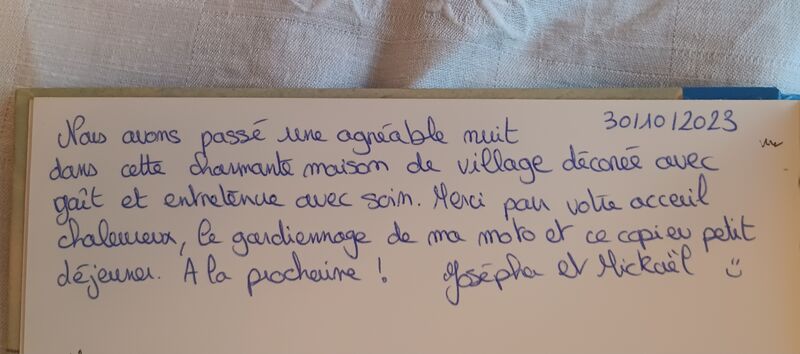 30/10/2023
Nous avons passé une agréable nuit
dans cette charmante maison de village décorée avec
goût et entretenue avec soin. Merci pour votre acceuil
chaleureux, le gardiennage de ma moto et ce copieu petit
déjeuner. A la prochaine ! Josépha et Mickaël